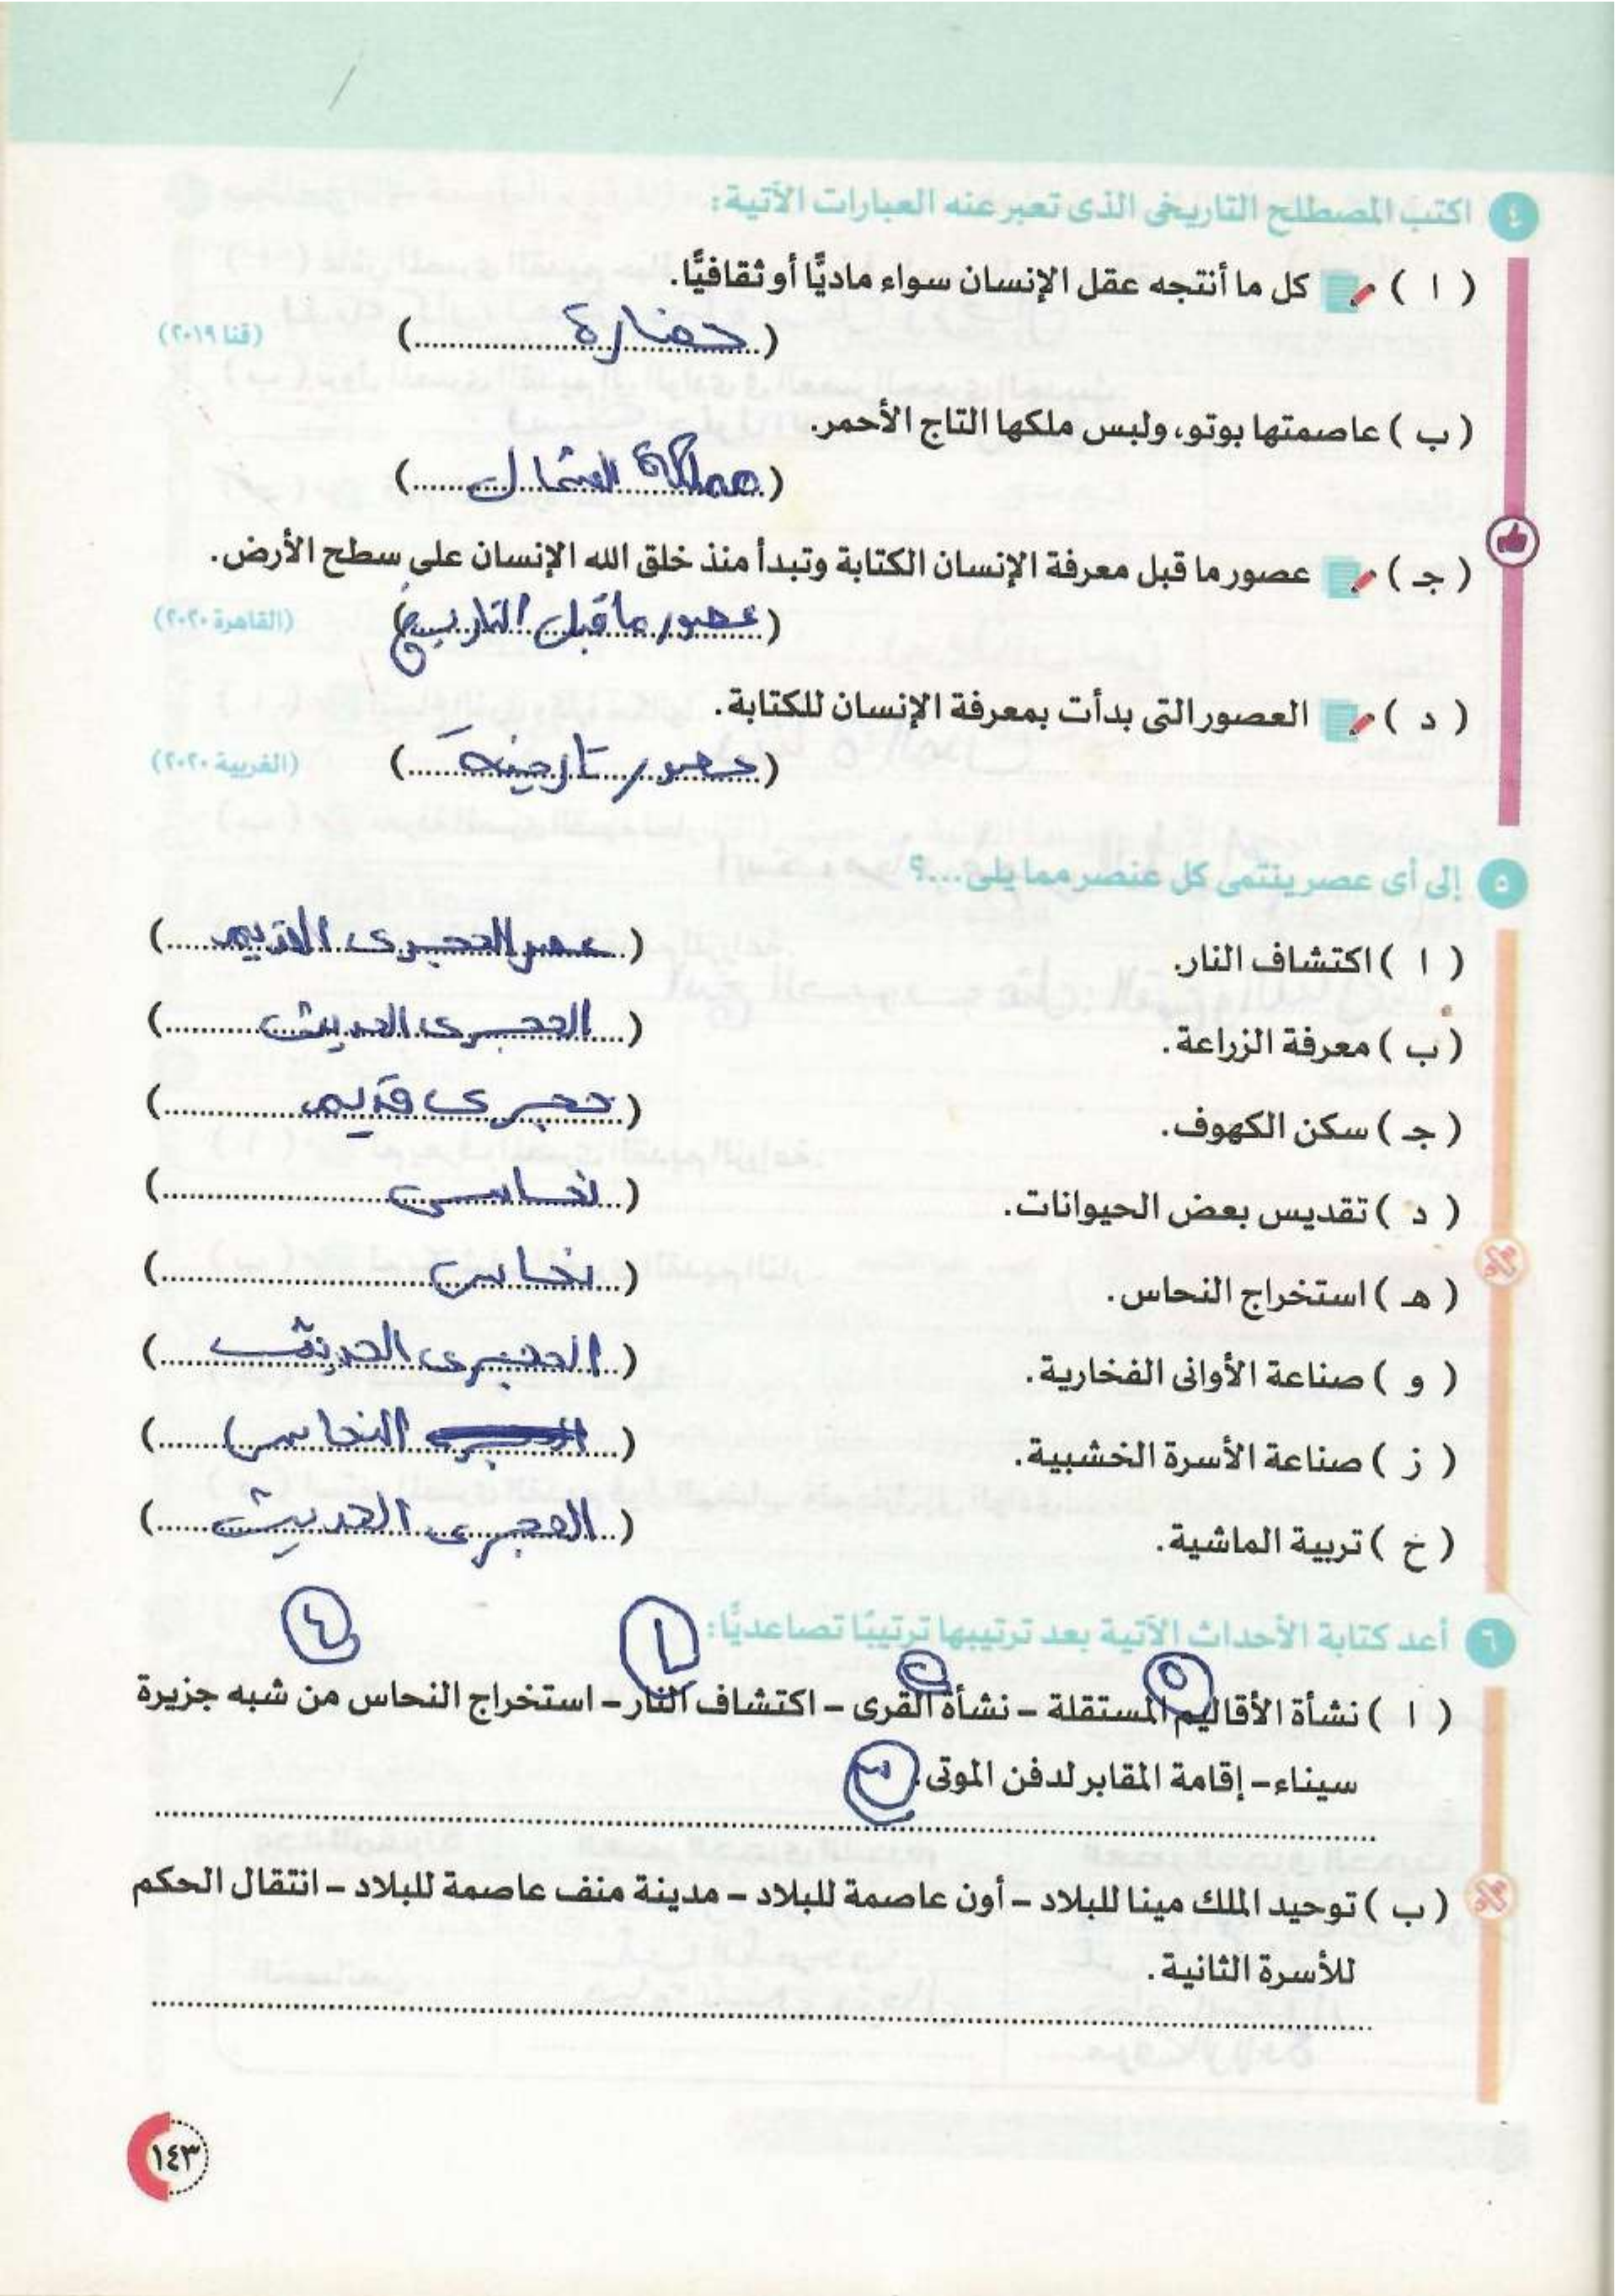 ٤ اكتب المصطلح التاريخى الذى تعبر عنه العبارات الآتية:
( ا ) كل ما أنتجه عقل الإنسان سواء ماديًّا أو ثقافيًّا.
(حضارة..................) (قنا ٢٠١٩)
( ب ) عاصمتها بوتو، ولبس ملكها التاج الأحمر.
(مملكة الشمال......)
( جـ ) عصور ما قبل معرفة الإنسان الكتابة وتبدأ منذ خلق الله الإنسان على سطح الأرض.
(عصور ما قبل التاريخ) (القاهرة ٢٠٢٠)
( د ) العصور التى بدأت بمعرفة الإنسان للكتابة.
(عصور تاريخية......) (الغربية ٢٠٢٠)
٥ إلى أى عصر ينتمى كل عنصر مما يلى...؟
( ا ) اكتشاف النار. (عصر الحجرى القديم......)
( ب ) معرفة الزراعة. (الحجرى الحديث..........)
( جـ ) سكن الكهوف. (حجرى قديم..............)
( د ) تقديس بعض الحيوانات. (نحاسى......................)
( هـ ) استخراج النحاس. (نحاس..........................)
( و ) صناعة الأوانى الفخارية. (الحجرى الحديث......)
( ز ) صناعة الأسرة الخشبية. (النحاس......)
( خ ) تربية الماشية. (الحجرى الحديث......)
٦ أعد كتابة الأحداث الآتية بعد ترتيبها ترتيبًا تصاعديًّا:
٥ ٢ ١ ٤
( ا ) نشأة الأقاليم المستقلة – نشأة القرى – اكتشاف النار – استخراج النحاس من شبه جزيرة
سيناء – إقامة المقابر لدفن الموتى. ٣
( ب ) توحيد الملك مينا للبلاد – أون عاصمة للبلاد – مدينة منف عاصمة للبلاد – انتقال الحكم
للأسرة الثانية.
١٤٣